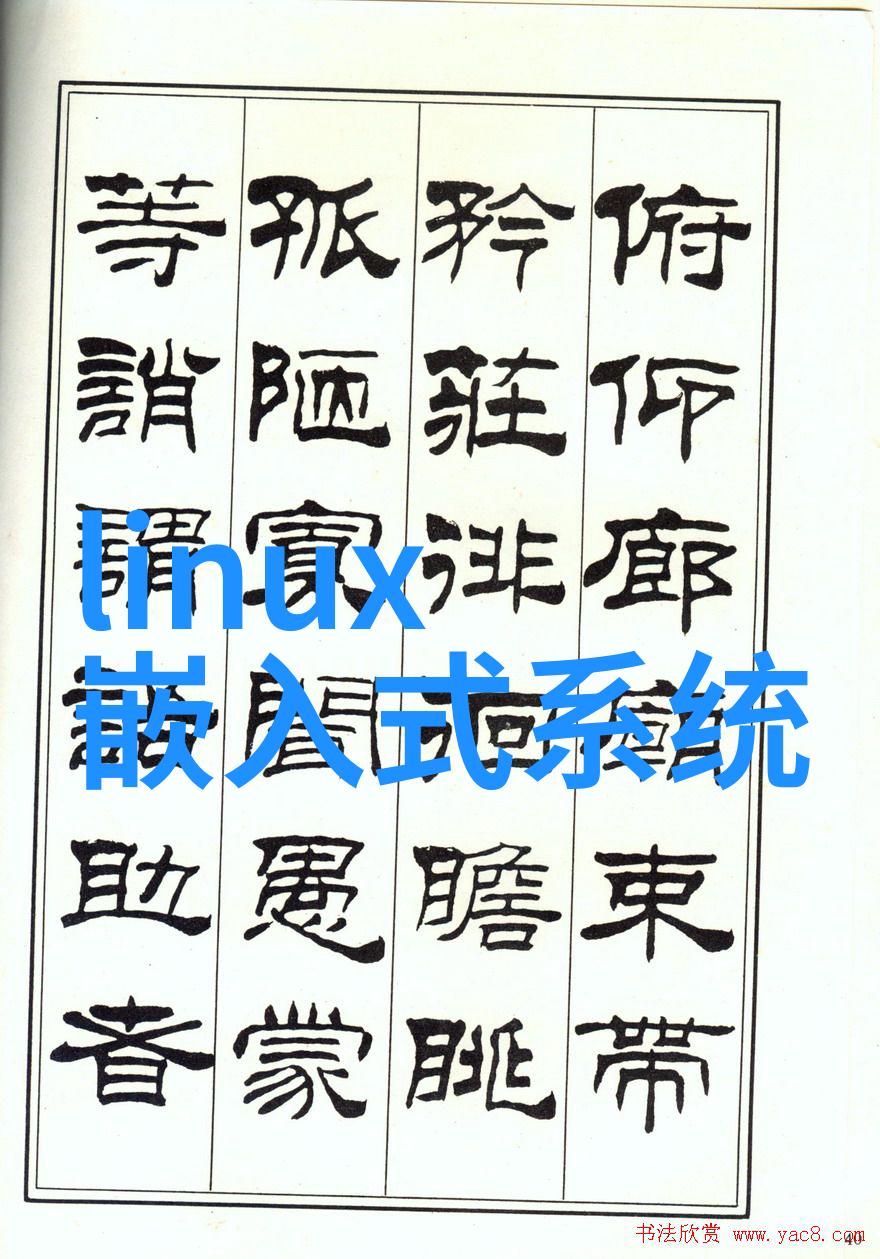 俯仰廊廟束帶
矜莊徘徊瞻眺
孤陋寡聞愚蒙
等誚謂語助者
linux
嵌入式系统
书法欣赏 www.yac8.com
40